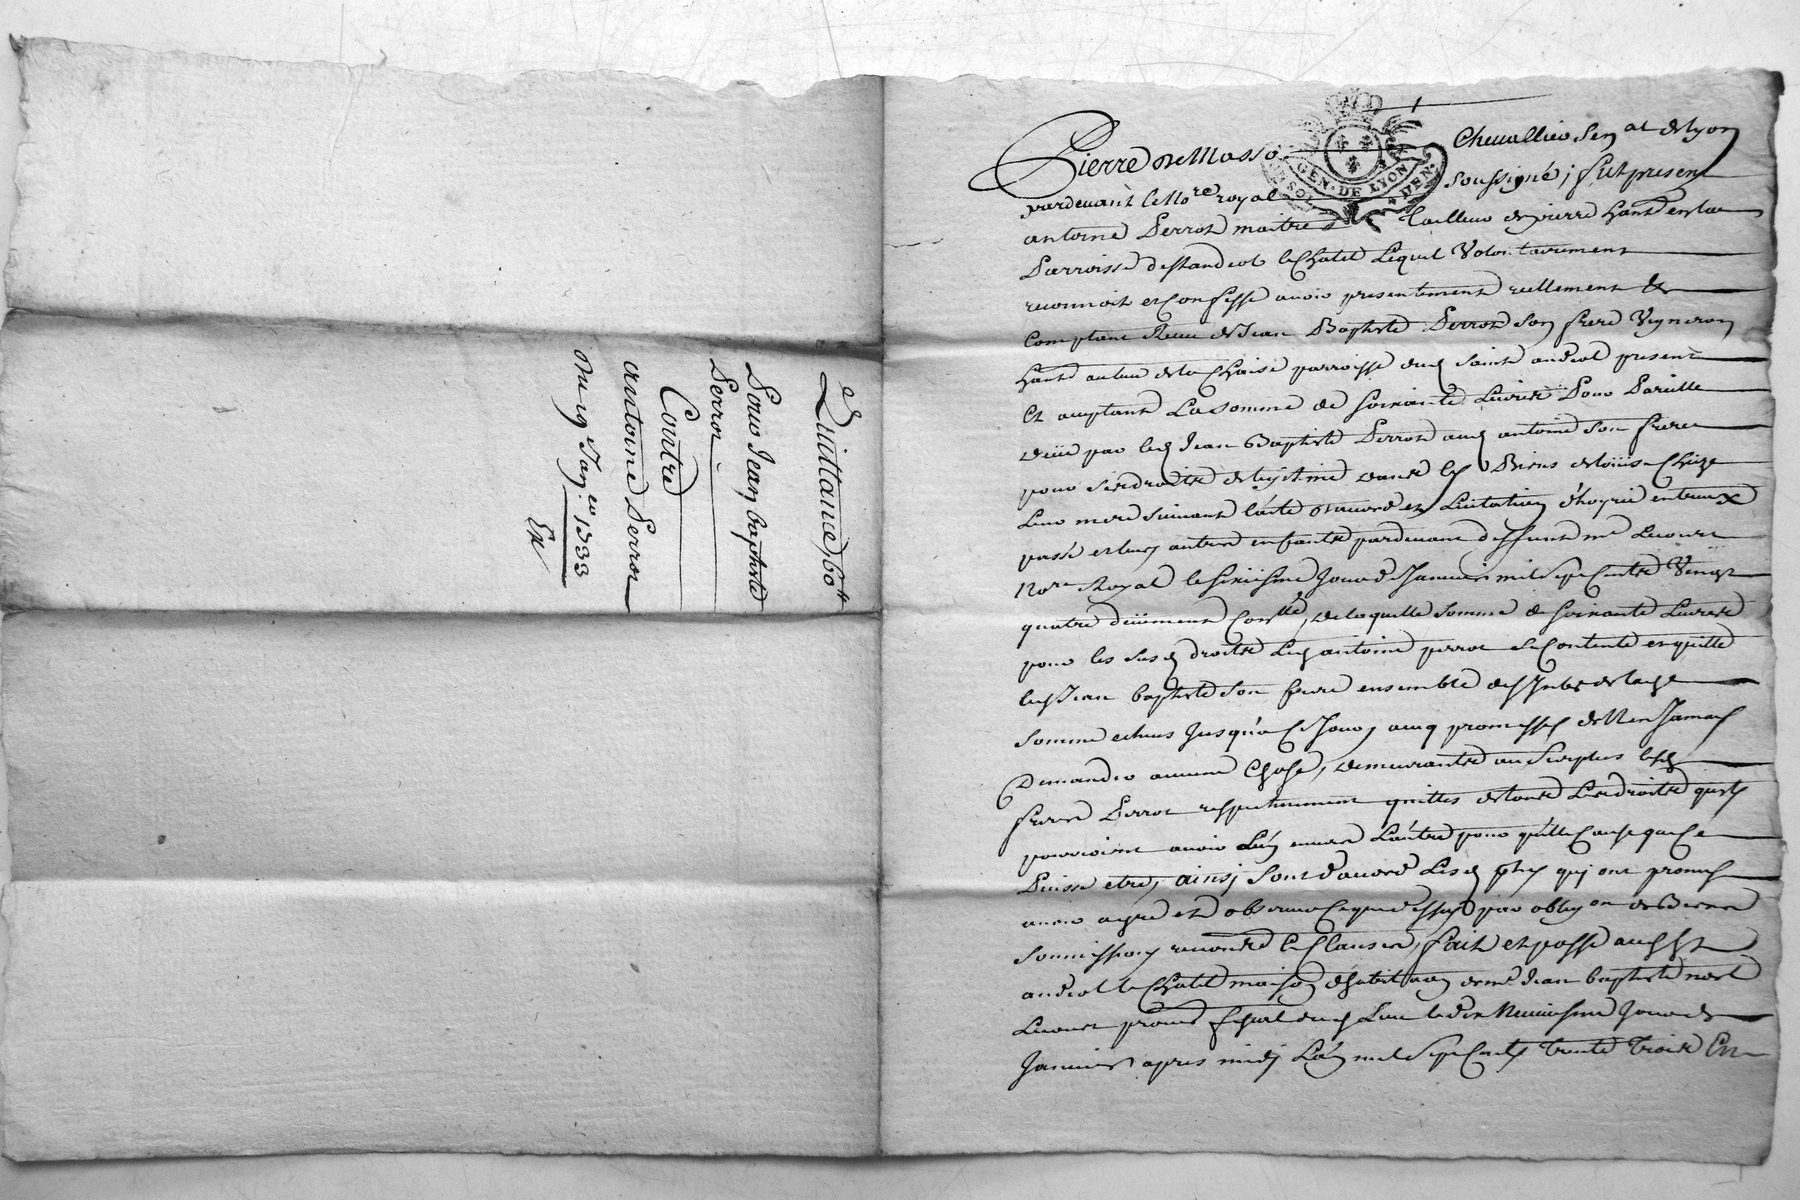 Quittance 60tt
Pour Jean baptiste
Perrot
Contre
antoine Perrot
Du 19e Janer 1733
Ex
GEN. DE LYON
Pierre De Masso Chevallier Senal de lyon
pardevant le Nore royal soussigné, fut present
antoine Perrot maitre tailleur de pierre habt en la
Parroisse de st andeol le Chatel Lequel Volontairement
reconnoit et Confesse avoir presentement reellement &
Comptant Receu de Jean Baptiste Perrot Son frere Vigneron
habt au lieu de la Chaise parroisse dud saint andeol present
Et acceptant La somme de soixante Livres Pour Pareille
deüe par led Jean Baptiste Perrot aud antoine son frere
pour ses droits de legitime dans les Biens de
Leur mere suivant l'acte d'accord et d'hoyrie entreux
passé et leurs autres enfants pardevant deffunt me Lecourt
Nore Royal le sixiesme Jour de Janvier mil Sept Cents Vingt
quatre deüement Conllé, de laquelle somme de soixante Livres
pour les susd droits Led antoine perrot se Contente en quitte
led Jean baptiste son frere ensemble des Intts de lad
somme echus Jusqu'a ce Jour, avec promesse de N'en Jamais
Demander aucune Chose, demeurants au surplus lesd
freres Perrot respectivement quittes de tous Les droits qu'ils
pourroient avoir L'un envers L'autre pour quelle Cause que Ce
Puisse etre, ainsi sont d'accord Lesd pties qui ont promis
avoir agreé et observer Ce que dessus par obligon de Biens
Soumissions renonces & Clauses, fait et passé aud St
andeol le Chatel maison d'habitaon de me Jean baptiste noel
Lecourt procr fiscal dud Lieu le dix Neuviesme Jour de
Janvier apres midy L'an mil Sept Cents trente trois En